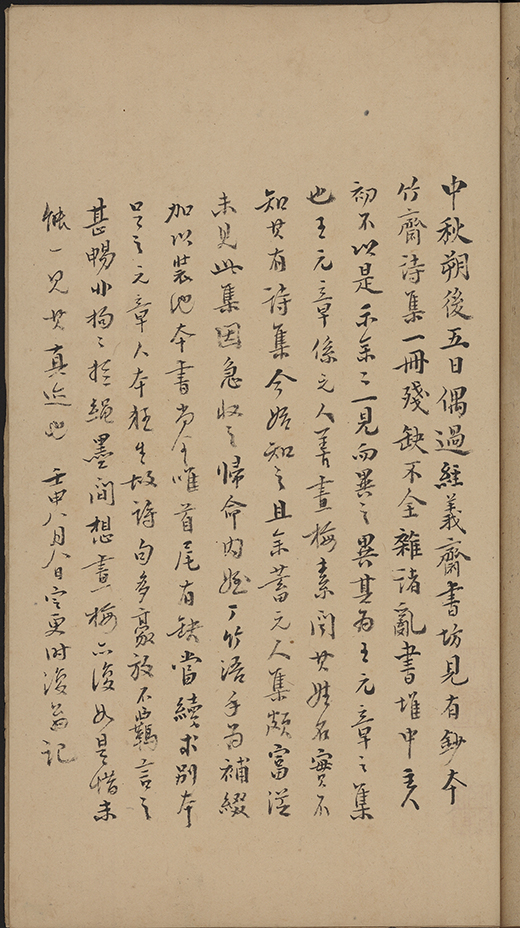 中秋朔後五日偶過經義齋書坊見有鈔本
竹齋詩集一冊殘缺不全雜諸亂書堆中主人
初不以是示余二一見而異之異其為王元章之集
也王元章係元人善畫梅素聞其姓名實不
知其有詩集今始知之且余蓄元人集頗富從
未見此集因急收之歸命內姪丁竹浯手為補綴
加以裝池本書尚全唯首尾有缺當續求別本
足之元章人本狂生故詩句多豪放不羈言之
甚暢非拘々於繩墨間想畫梅亦復如是惜未
能一見其真迹也 壬申八月八日定更時復翁記